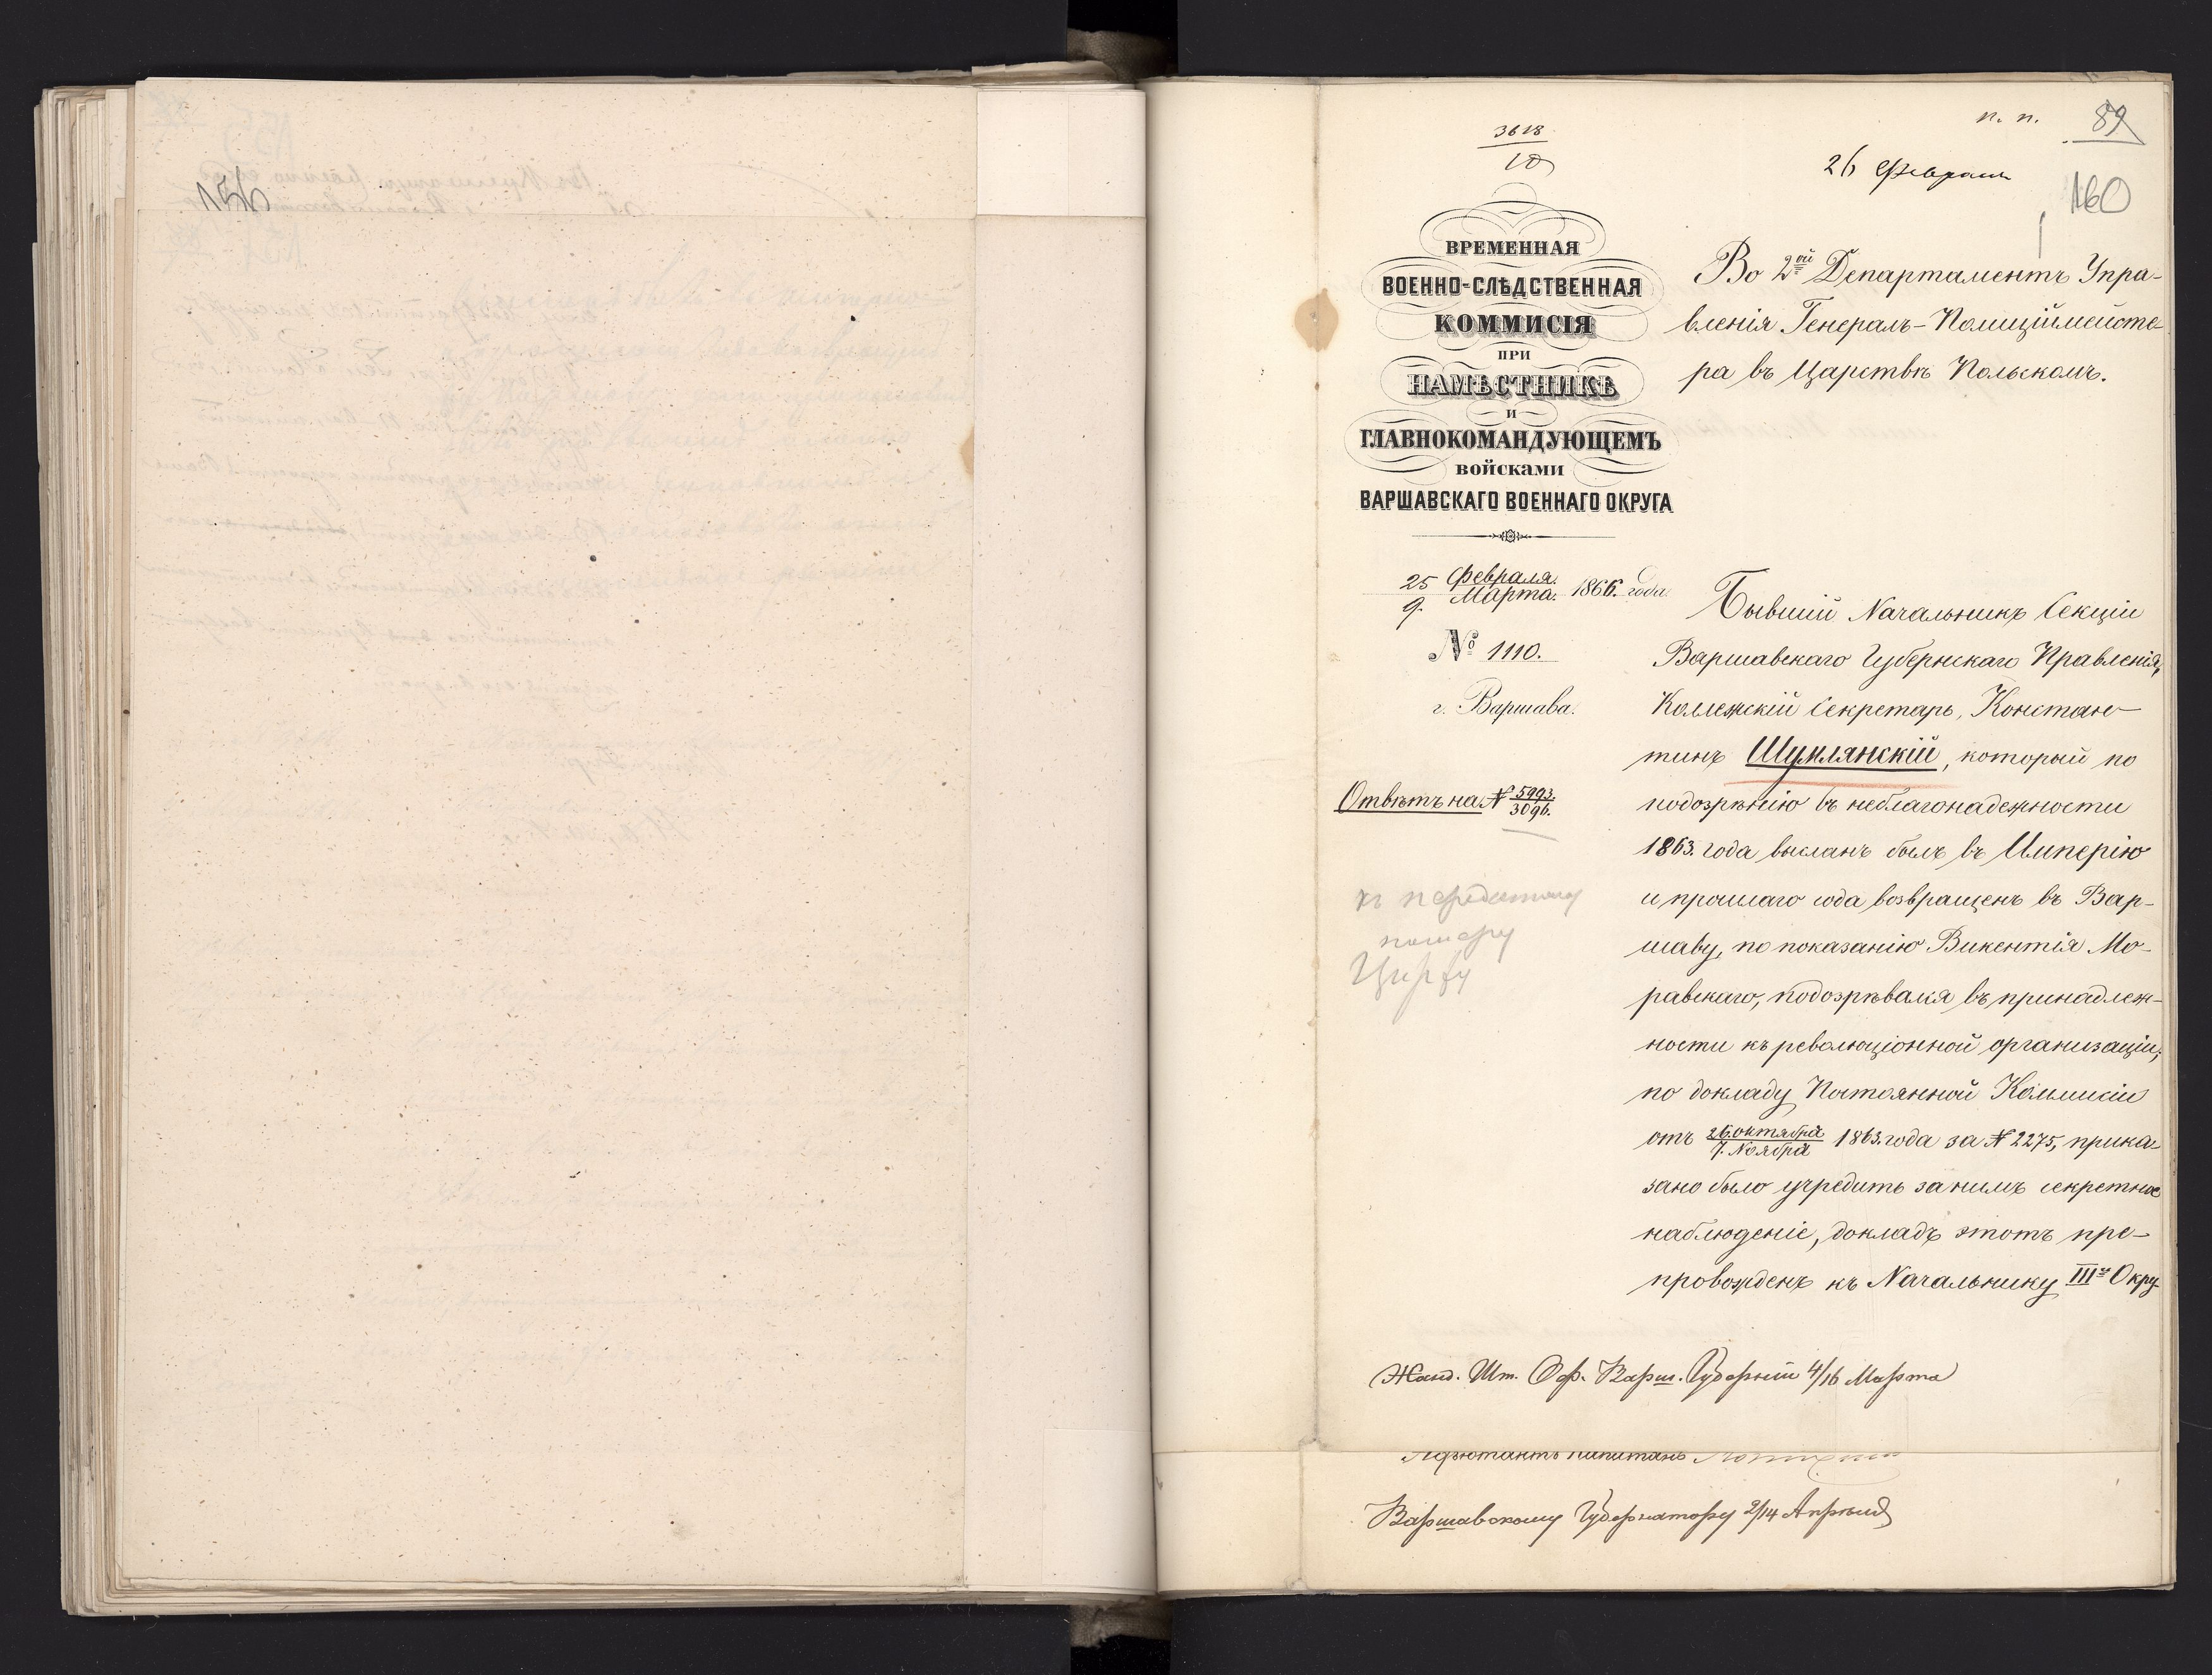 156
3618
10
п. п.
89
26 февраля
160
ВРЕМЕННАЯ
ВОЕННО-СЛѢДСТВЕННАЯ
КОММИСІЯ
ПРИ
НАМѢСТНИКѢ
И
ГЛАВНОКОМАНДУЮЩЕМЪ
ВОЙСКАМИ
ВАРШАВСКАГО ВОЕННАГО ОКРУГА
25 Февраля
9. Марта. 1866. года
№ 1110.
г. Варшава.
Отвѣтъ на № 5993.
3096.
Во 2ой Департаментъ Упра-
вленія Генералъ-Полиціймейсте-
ра въ Царствѣ Польскомъ.
Бывшій Начальникъ Секціи
Варшавскаго Губернскаго Правленія,
Коллежскій Секретарь, Констан-
тинъ Шумлянскій, который по
подозрѣнію въ неблагонадежности
1863. года высланъ былъ въ Имперію
и прошлаго года возвращенъ въ Вар-
шаву, по показанію Викентія Мо-
равскаго, подозрѣвался въ принадлеж-
ности къ революціонной организаціи;
по докладу Постоянной Коммисіи
отъ 26. октября
7. Ноября 1863. года за № 2275, прика-
зано было учредить за нимъ секретное
наблюденіе, докладъ этотъ пре-
провожденъ къ Начальнику III го Окру-
Жанд. Шт. Оф. Варш. Губерніи 4/16 Марта
Адъютантъ Капитанъ
Варшавскому Губернатору 2/14 Апрѣля